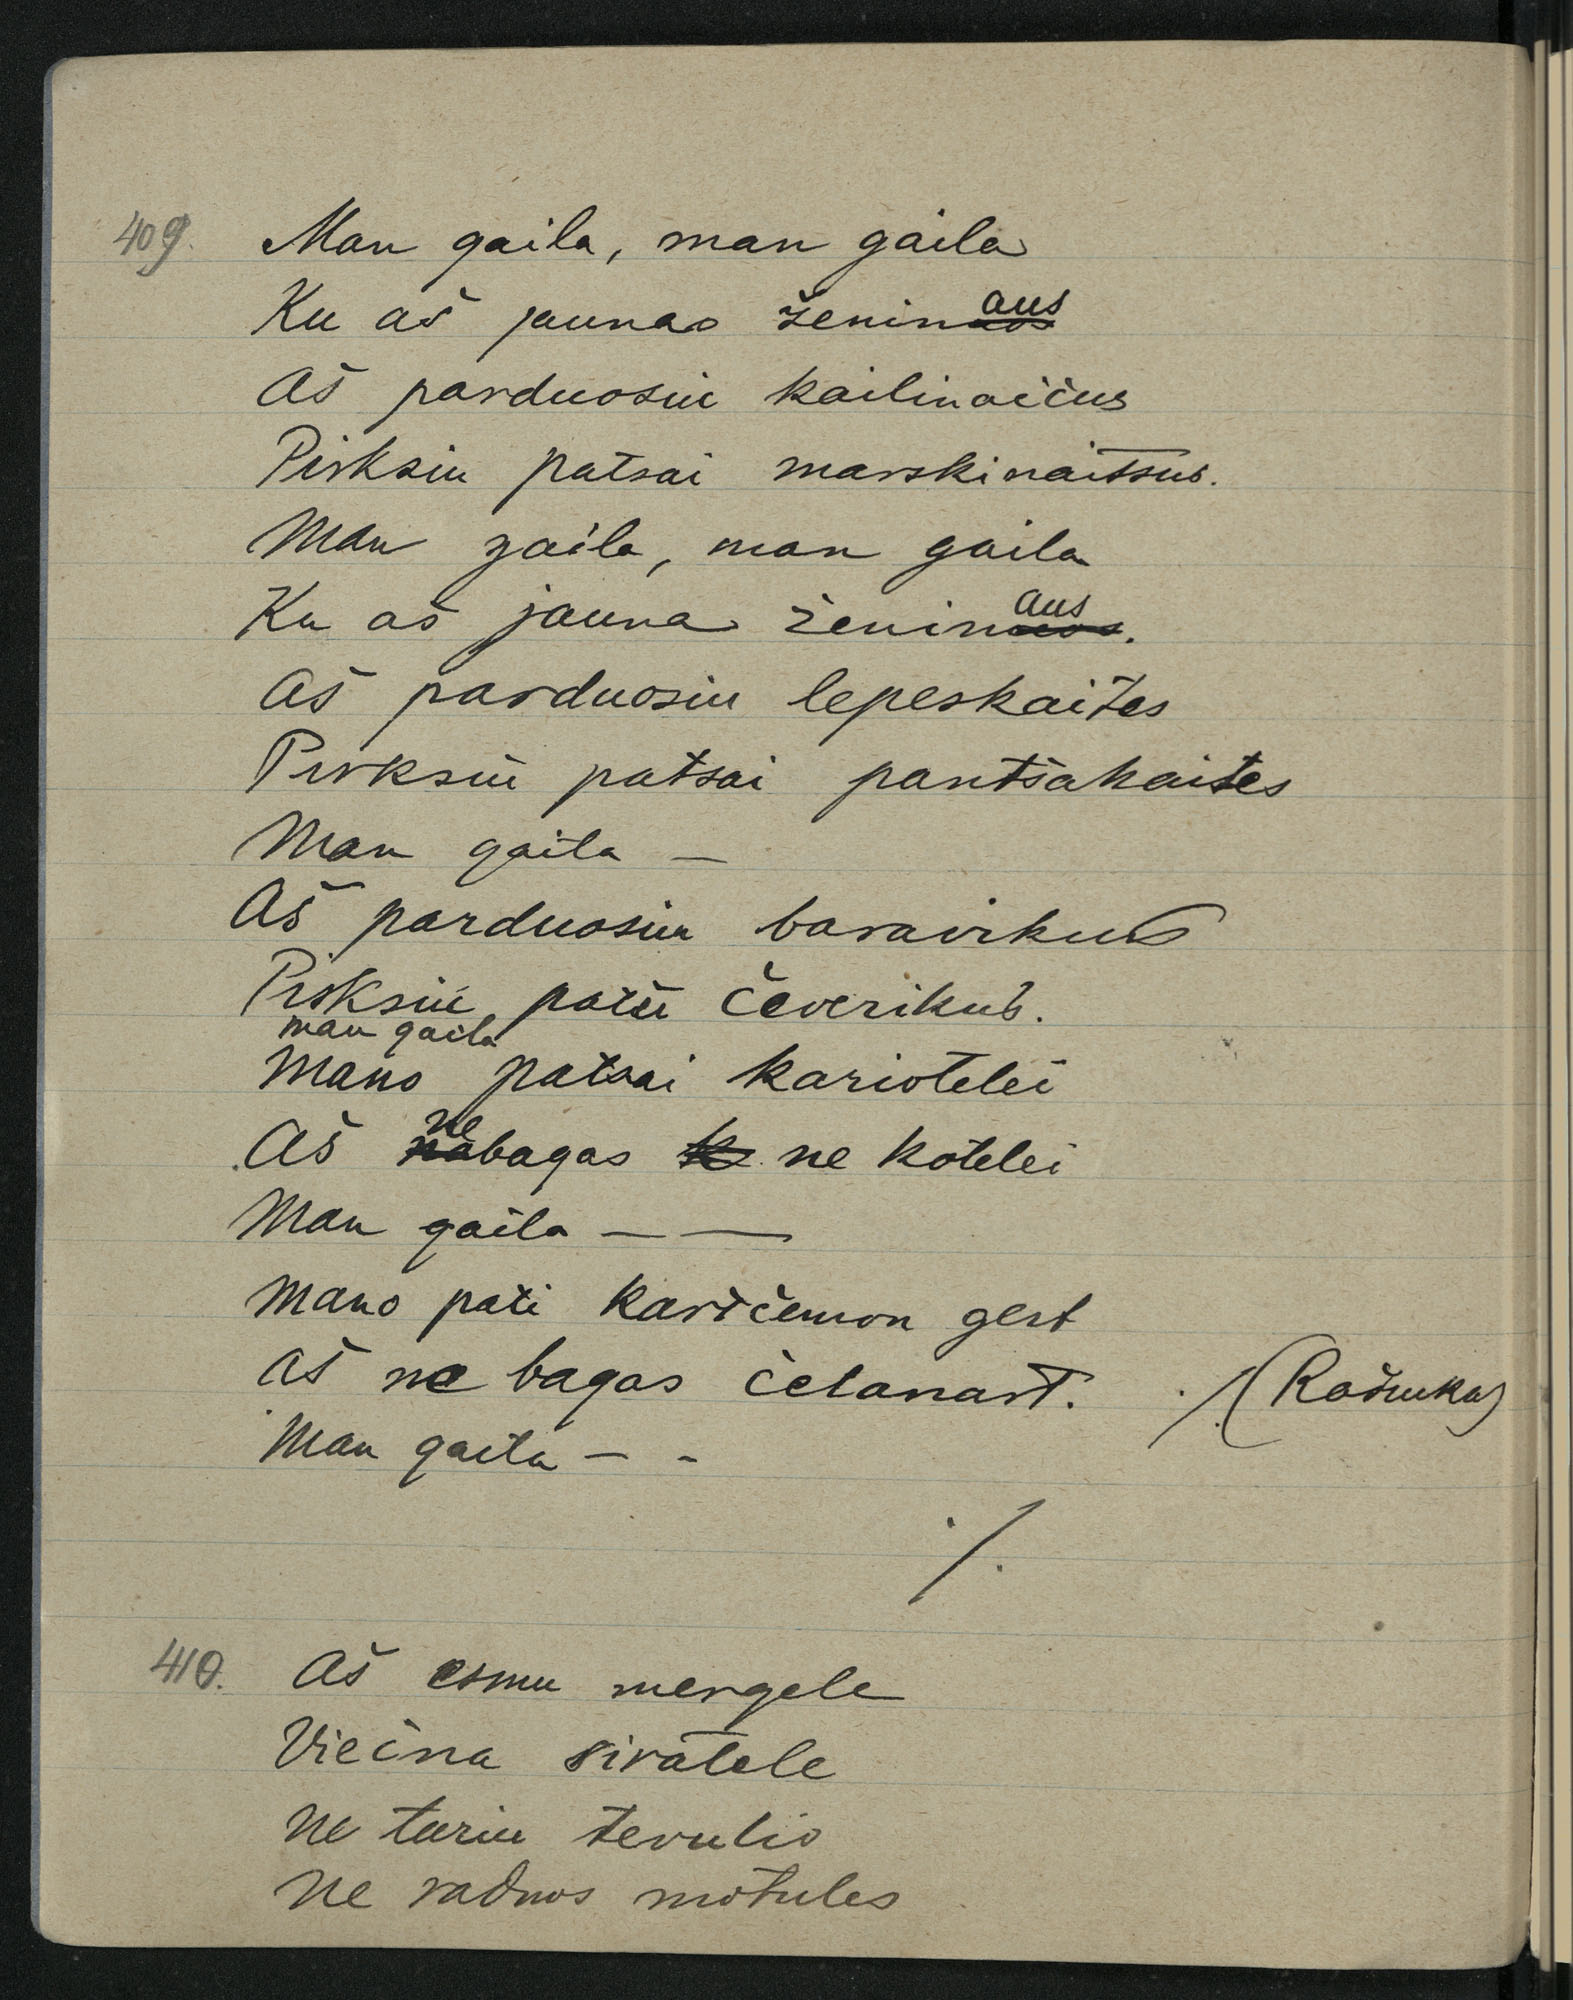 409. Man gaila, man gaila
Ku aš jaunas ženinaus
Aš parduosiu kailinaičus
Pirksiu patsai marskinaitsus.
Man gaila, man gaila
Ku aš jauna ženinaus.
Aš parduosiu lepeskaites
Pirksiu patsai pantšakaites
Man gaila —
Aš parduosiu baravikus
Pirksiu patii čeverikus.
man gaila
Mano patsai kariotelei
Aš nebagas ne kotelei
Man gaila — —
Mano pati kartčemon gert
Aš ne bagas čelanart. ./.(Rožuuka)
Man gaila — -
./.
410. Aš esmu mergele
Viečna siratele
Ne turiu tevulio
Ne radnos motules